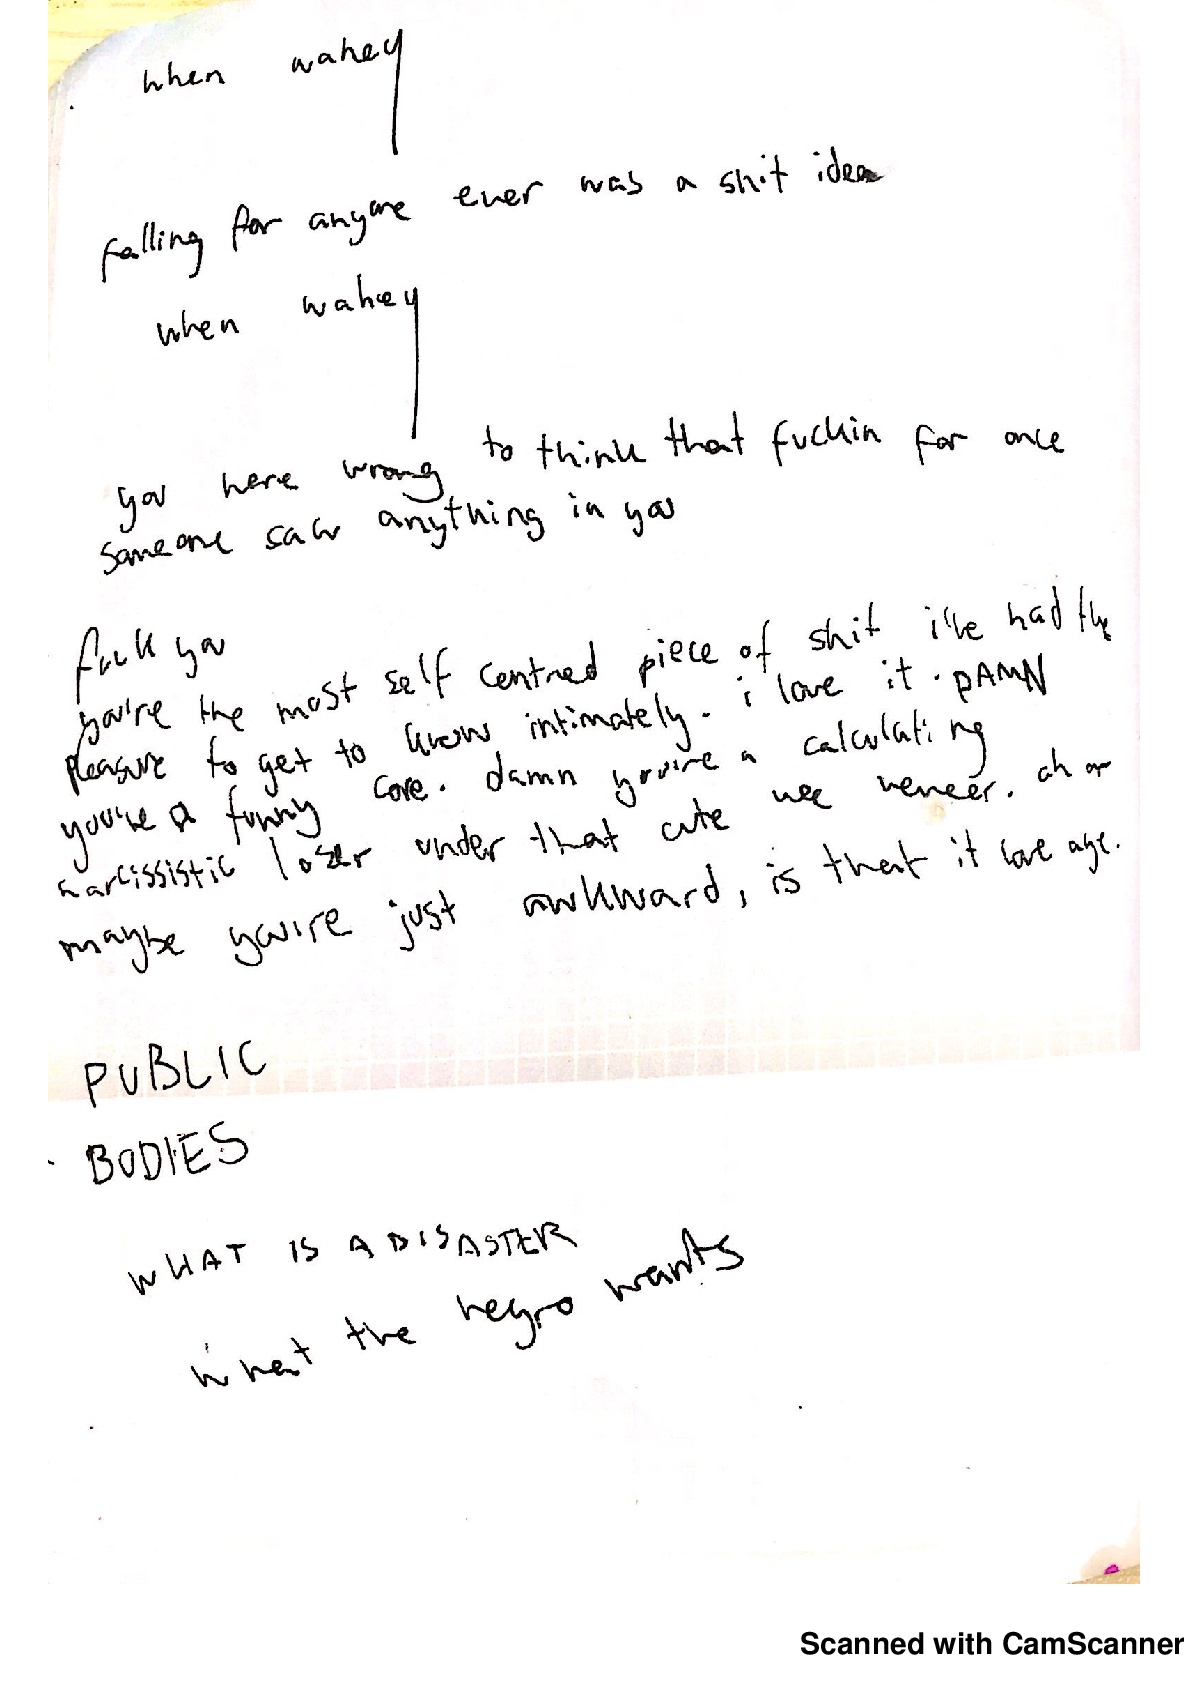 when wahey
falling for anyone ever was a shit idea
when wahey
you were wrong to think that fuckin for once
someone saw anything in you
fuck you
you're the most self centred piece of shit i've had the
pleasure to get to know intimately. i love it. DAMN
you're a funny core. damn you're a calculating
narcissistic loser under that cute wee veneer. oh or
maybe you're just awkward, is that it love aye.
PUBLIC
BODIES
WHAT IS A DISASTER
what the negro wants
Scanned with CamScanner